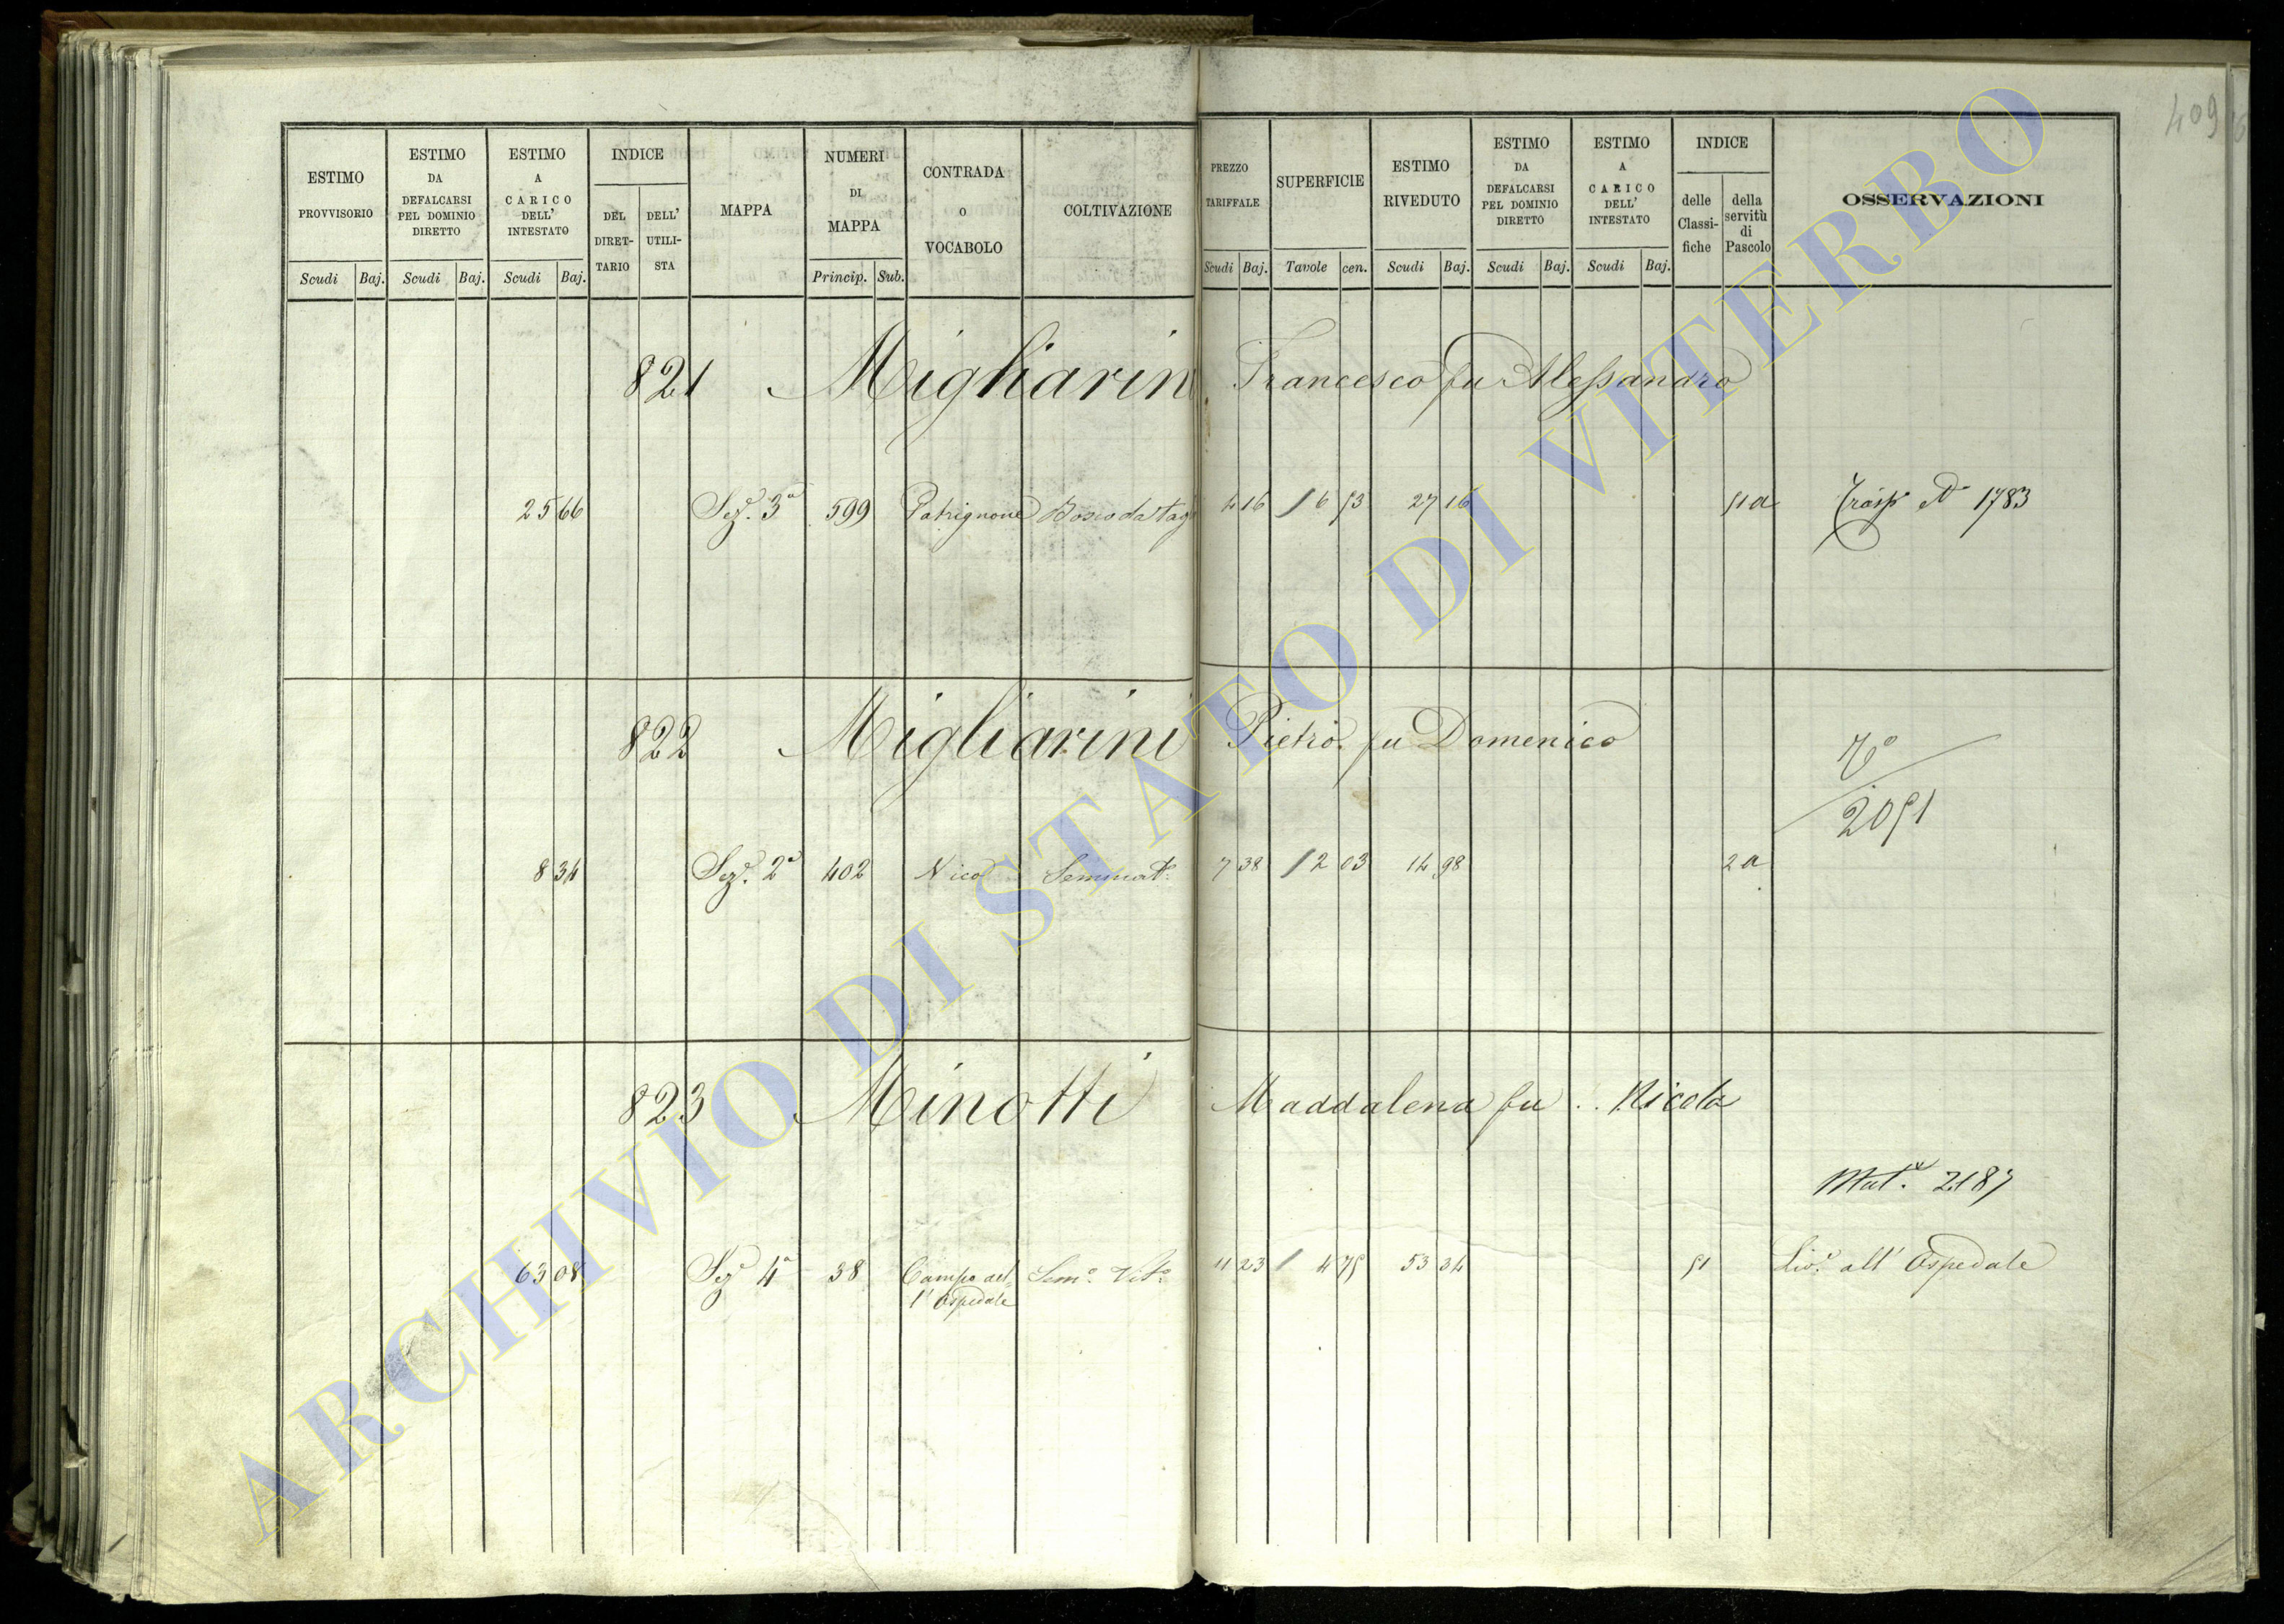 409
ESTIMO PROVVISORIO
ESTIMO DA DEFALCARSI PEL DOMINIO DIRETTO
ESTIMO A CARICO DELL' INTESTATO
INDICE
DEL DIRET-TARIO
DELL' UTILI-STA
MAPPA
NUMERI DI MAPPA
CONTRADA O VOCABOLO
COLTIVAZIONE
PREZZO TARIFFALE
SUPERFICIE
ESTIMO RIVEDUTO
ESTIMO DA DEFALCARSI PEL DOMINIO DIRETTO
ESTIMO A CARICO DELL' INTESTATO
INDICE
delle Classi-fiche
della servitù di Pascolo
OSSERVAZIONI
Scudi Baj. Scudi Baj. Scudi Baj. Princip. Sub. Scudi Baj. Tavole cen. Scudi Baj. Scudi Baj. Scudi Baj.
821 Migliarini Francesco fu Alessandro
25 66 Sez. 3a 599 Patrignone Bosco da tag 4 16 / 6 53 27 16 51a Trasp. N 1783
822 Migliarini Pietro fu Domenico
Vo
2051
8 34 Sez. 2a 402 Nicod Seminato 7 38 / 2 03 14 98 2a
823 Minotti Maddalena fu Nicola
Mut. 2187
63 08 Sez. 4a 38 Campo del l'Ospedale Semo. Vito. 11 23 / 4 75 53 34 51 Livo. all' Ospedale
ARCHIVIO DI STATO DI VITERBO